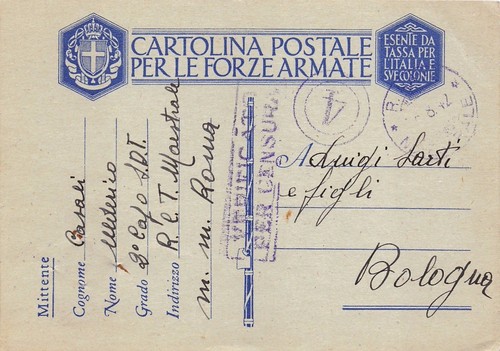 CARTOLINA POSTALE
PER LE FORZE ARMATE
ESENTE DA
TASSA PER
L'ITALIA E
SVE COLONIE
4
VERIFICATO
PER CENSURA
A Luigi Sarti
e figli
Bologna
Mittente
Cognome Casali
Nome
Grado 2° Capo S.D.T.
Indirizzo R. C. T. Maestrale
m. m. Roma